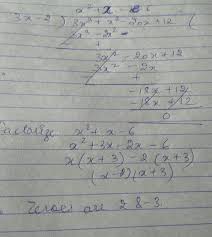 x² + x - 6
3x - 2 ) 3x³ + x² - 20x + 12 (
3x³ - 2x²
- +
3x² - 20x + 12
3x² - 2x
- +
- 18x + 12
- 18x + 12
0
Factorize x² + x - 6
x² + 3x - 2x - 6
x(x + 3) - 2(x + 3)
(x - 2)(x + 3)
Zeroes are 2 & -3.